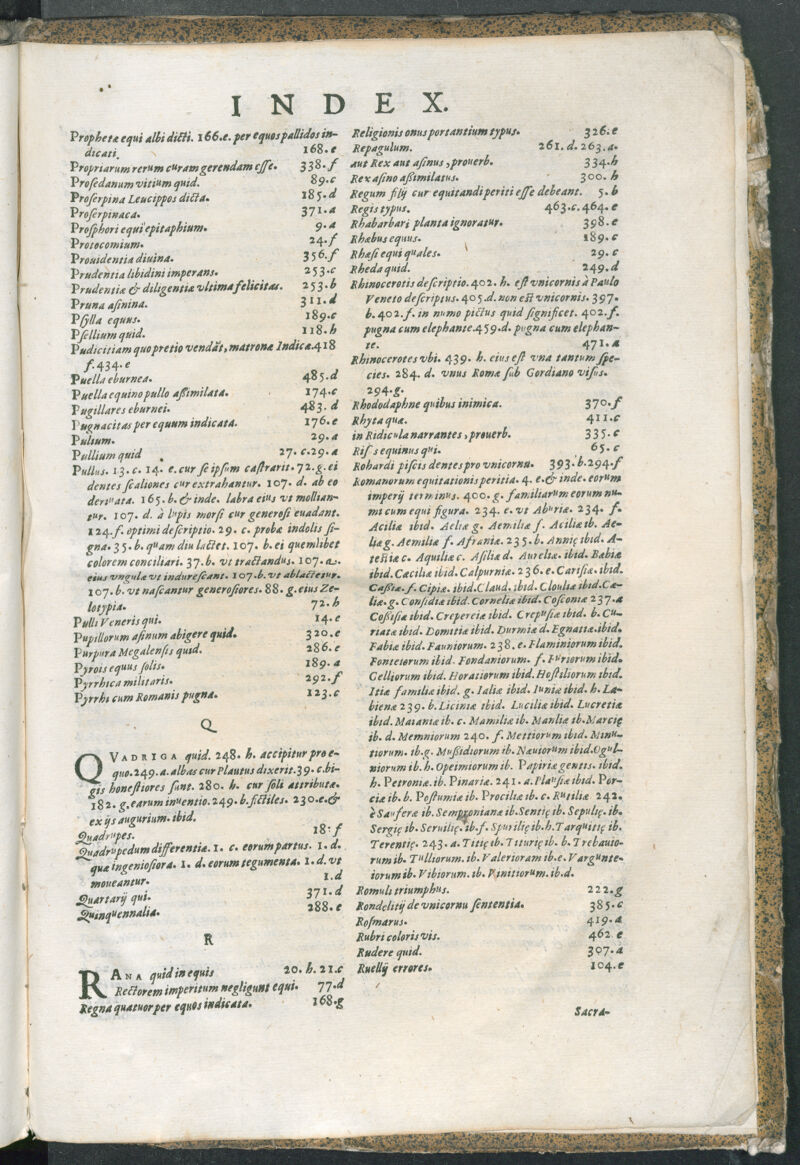 INDEX.
Prophetæ equi albi dicti. 166.e. per equos pallidos in-
dicati. 168.e
Propriarum rerum curam gerendam esse. 338.f
Prosedanum vitium quid. 89.c
Proserpina Leucippos dicta. 185.d
Proserpinaca. 371.a
Prosphori equi epitaphium. 9.a
Protocomium. 24.f
Prouidentia diuina. 356.f
Prudentia libidini imperans. 253.c
Prudentiæ & diligentiæ vltima felicitas. 253.b
Pruna asinina. 311.d
Psylla equus. 189.c
Psellium quid. 118.h
Pudicitiam quo pretio vendāt, matronæ Indicæ.418
f.434.e
Puella eburnea. 485.d
Puella equino pullo assimilata. 174.c
Pugillares eburnei. 483.d
Pugnacitas per equum indicata. 176.e
Pulium. 29.a
Pullium quid 27.c.29.a
Pullus. 13.c. 14. e. cur se ipsum castrarit. 72.g. ei
dentes scaliones cur extrahantur. 107. d. ab eo
deriuata. 165. b. & inde. labra eius vt mollian-
tur. 107. d. à lupis morsi cur generosi euadant.
124.f. optimi descriptio. 29. c. probæ indolis si-
gna. 35. b. quam diu lactet. 107. b. ei quemlibet
colorem conciliari. 37.b. vt tractandus. 107.a.
eius vngulæ vt indurescant. 107.b. vt ablactetur.
107. b. vt nascantur generosiores. 88. g. eius Ze-
lotypia. 72.h
Pulli Veneris qui. 14.e
Pupillorum asinum abigere quid. 320.e
Purpura Megalensis quid. 286.e
Pyrois equus solis. 189.a
Pyrrhica militaris. 292.f
Pyrrhi cum Romanis pugna. 123.c
Q
QVADRIGA quid. 248. h. accipitur pro e-
quo.249.a. albas cur Plautus dixerit.39.c.bi-
gis honestiores sunt. 280. h. cur soli attributæ.
182. g. earum inuentio. 249.b. fictiles. 230.e.&
ex ijs augurium. ibid.
Quadrupes. 18.f
Quadrupedum differentiæ. 1. c. eorum partus. 1. d.
quæ ingeniosiora. 1. d. eorum tegumenta. 1.d. vt
moueantur. 1.d
Quartarij qui. 371.d
Quinquennalia. 288.e
R
RANA quid in equis 20. h. 21.c
Rectorem imperitum negligunt equi. 77.d
Regna quatuor per equos indicata. 168.g
Religionis onus portantium typus. 326.e
Repagulum. 261. d. 263.a.
aut Rex aut asinus, prouerb. 334.h
Rex asino assimilatus. 300. h
Regum filij cur equitandi periti esse debeant. 5.b
Regis typus. 463.c.464.e
Rhabarbari planta ignoratur. 398.e
Rhæbus equus. 189.c
Rhæsi equi quales. 29.c
Rheda quid. 249.d
Rhinocerotis descriptio.402. h. est vnicornis à Paulo
Veneto descriptus. 405.d. non est vnicornis. 397.
b.402.f. in numo pictus quid significet. 402.f.
pugna cum elephante.459.d. pugna cum elephan-
te. 471.a
Rhinocerotes vbi. 439. h. eius est vna tantum spe-
cies. 284. d. vnus Romæ sub Gordiano visus.
294.g.
Rhododaphne quibus inimica. 370.f
Rhyta quæ. 411.c
in Ridicula narrantes, prouerb. 335.c
Risus equinus qui. 65.c
Rohardi piscis dentes pro vnicornu. 393.b.294.f
Romanorum equitationis peritia. 4. e.& inde. eorum
imperij terminus. 400. g. familiarum eorum nu-
mi cum equi figura. 234. e. vt Aburiæ. 234. f.
Aciliæ ibid. Aeliæ g. Aemiliæ f. Aciliæ ib. Ae-
liæ g. Aemiliæ f. Afraniæ. 235.b. Annię ibid. A-
teñiæ c. Aquiliæ c. Asiliæ d. Aureliæ. ibid. Bæbiæ
ibid. Cæciliæ ibid. Calpurniæ. 236.e. Carisiæ. ibid.
Cassiæ. f. Cipiæ. ibid. Claud. ibid. Clouliæ ibid. Cæ-
liæ. g. Considiæ ibid. Corneliæ ibid. Cosconiæ 237.a
Cossisiæ ibid. Crepereiæ ibid. Crepusiæ ibid. b. Cu-
riatæ ibid. Domitiæ ibid. Durmiæ d. Egnatiæ.ibid.
Fabiæ ibid. Fauniorum. 238.e. Flaminiorum ibid.
Fonteiorum ibid. Fondaniorum. f. Furiorum ibid.
Gelliorum ibid. Horatiorum ibid. Hostiliorum ibid.
Itiæ familiæ ibid. g. Ialiæ ibid. Iuniæ ibid. h. La-
bienæ 239. b. Liciniæ ibid. Luciliæ ibid. Lucretiæ
ibid. Maianiæ ib. c. Mamiliæ ib. Manliæ ib. Marcię
ib. d. Memniorum 240. f. Mettiorum ibid. Minu-
tiorum. ib.g. Mussidiorum ib. Næuiorum ibid. Ogul-
niorum ib. h. Opeimiorum ib. Papiriæ gentis. ibid.
h. Petroniæ. ib. Pinariæ. 241. a. Plausiæ ibid. Por-
ciæ ib. b. Postumiæ ib. Prociliæ ib. c. Rutiliæ 242.
e Sauferæ ib. Semproniane ib. Sentię ib. Sepulię. ib.
Sergię ib. Seruilię. ib.f. Spurilię ib.h. Tarquitię ib.
Terentię. 243. a. Titię ib. Titurię ib. b. Trebauio-
rum ib. Tulliorum. ib. Valerioram ib.c. Vargunte-
iorum ib. Vibiorum. ib. Vinitiorum. ib.d.
Romuli triumphus. 222.g
Rondelitij de vnicornu sententia. 385.c
Rosmarus. 419.a
Rubri coloris vis. 462 e
Rudere quid. 307.a
Ruellij errores. 104.e
Sacra-